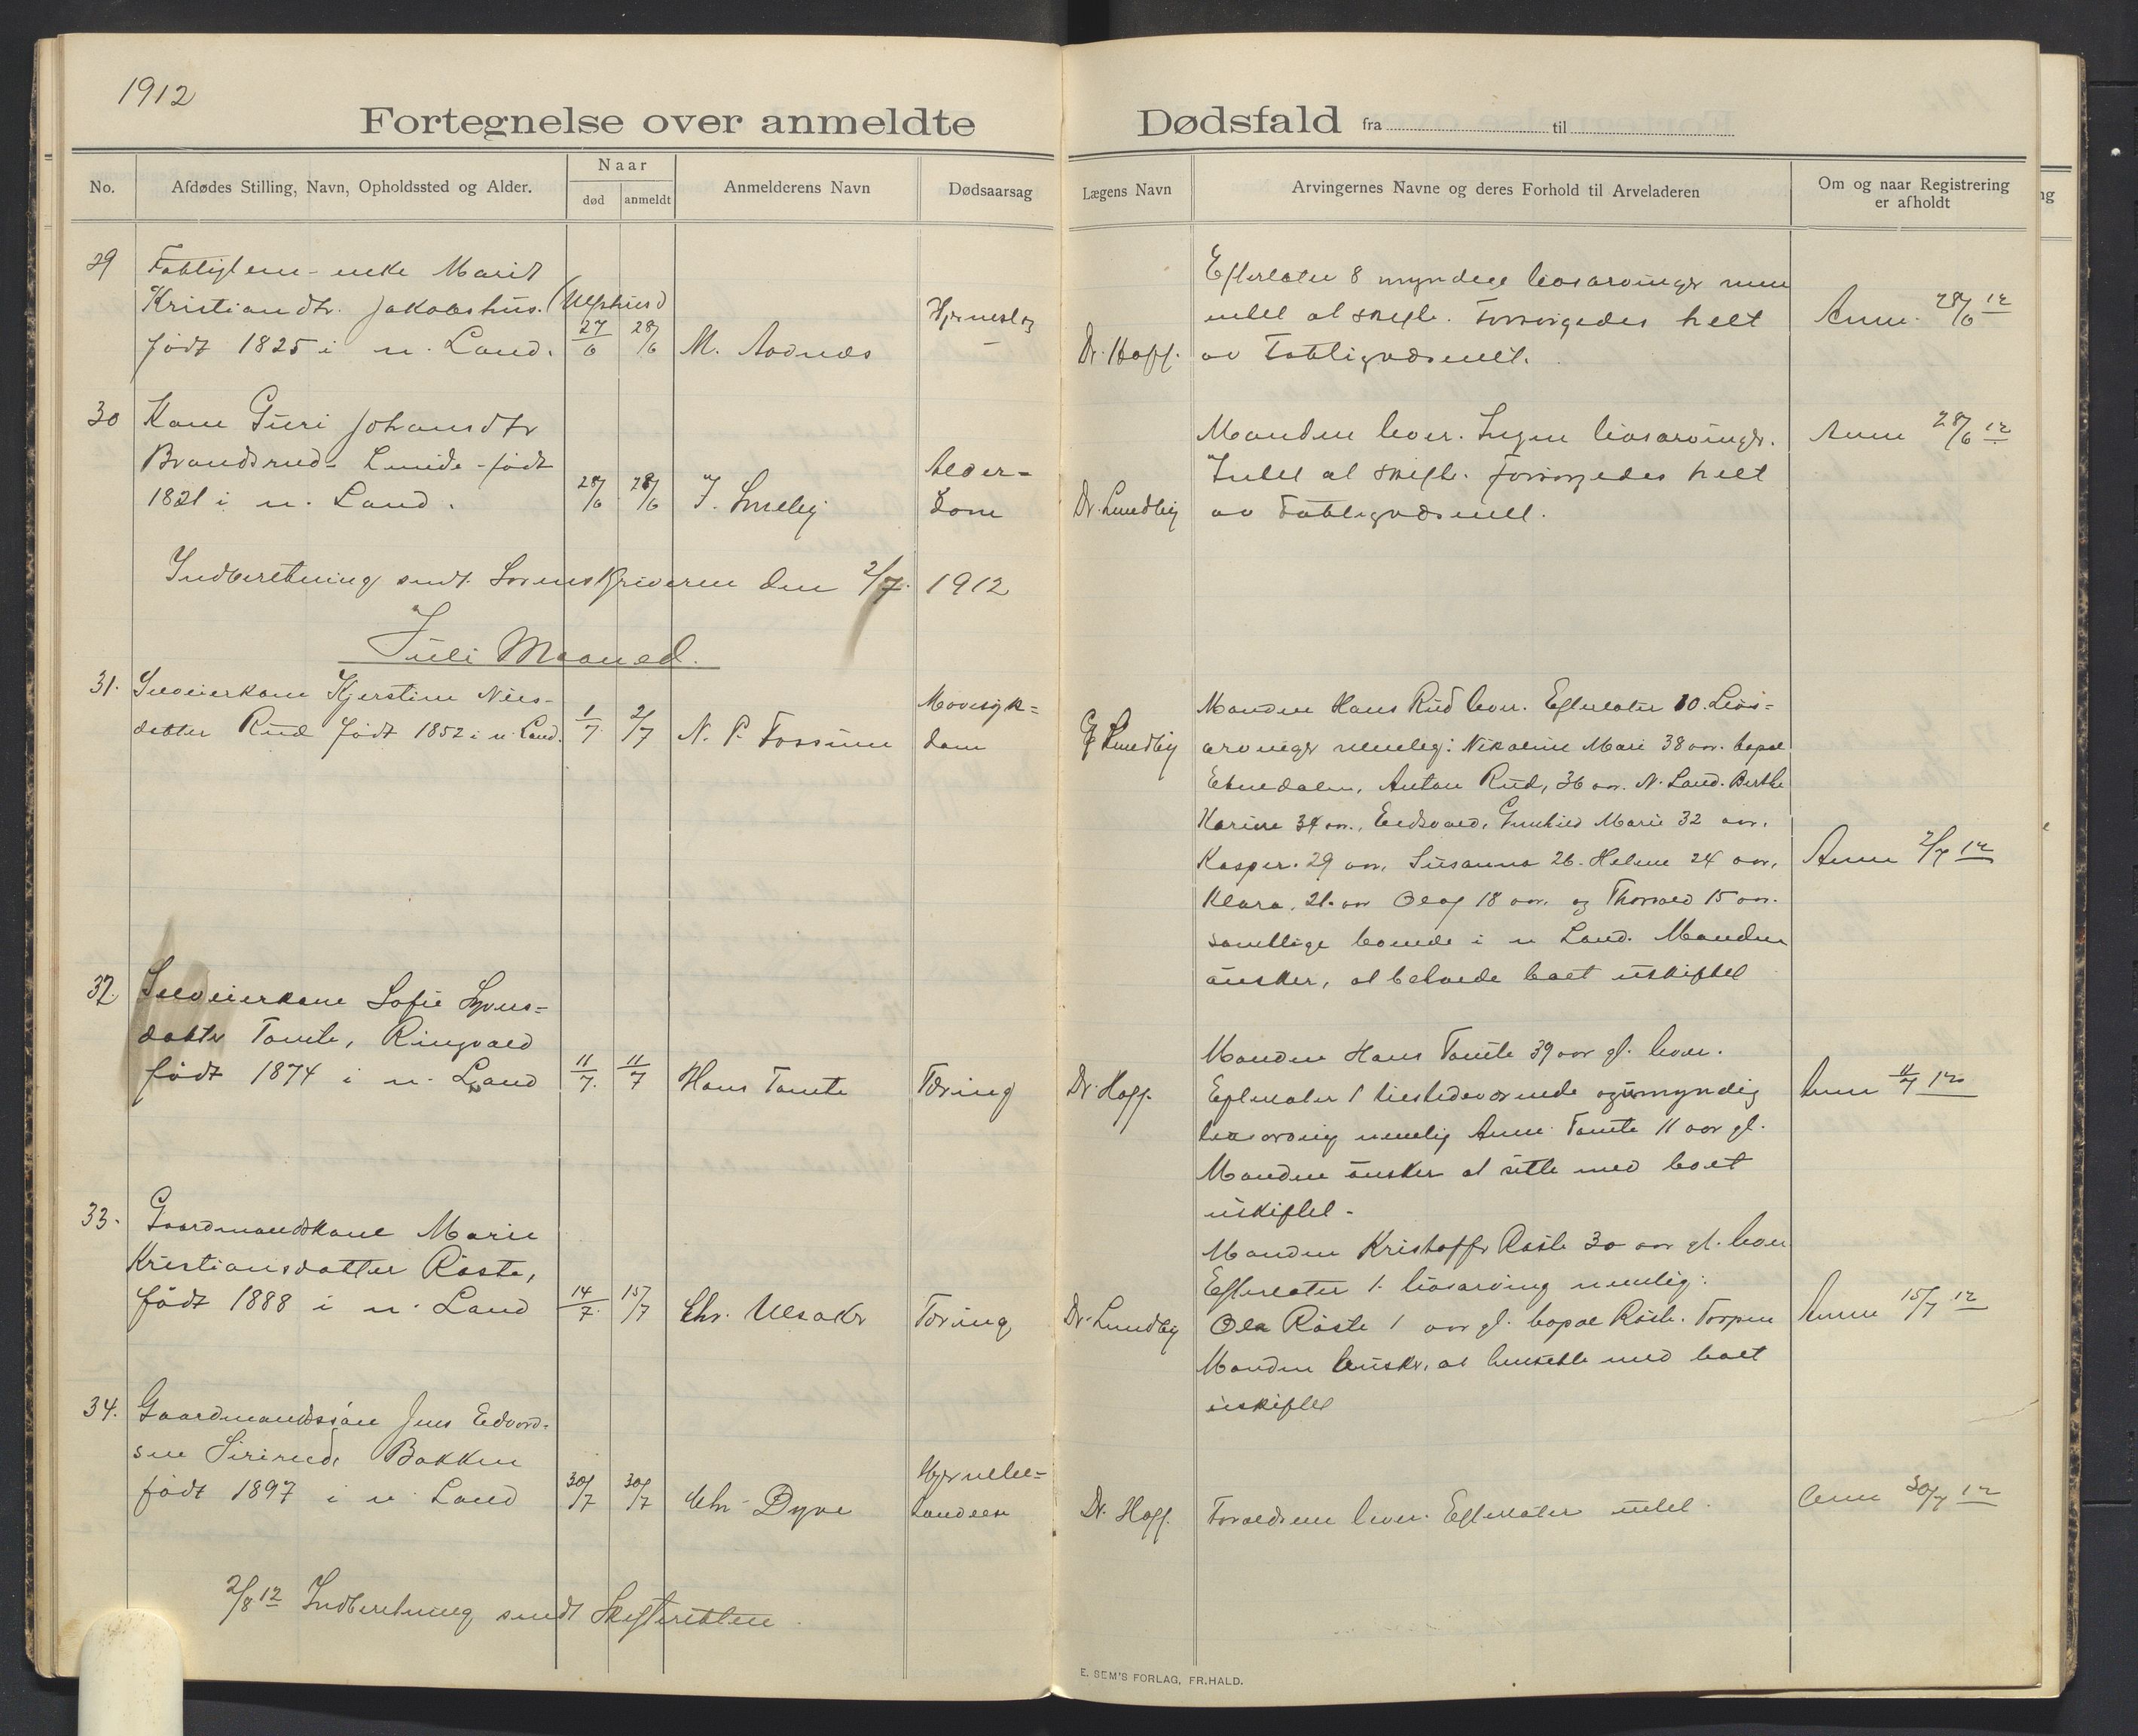 1912
Fortegnelse over anmeldte Dødsfald fra til
No.
Afdødes Stilling, Navn, Opholdssted og Alder.
Naar
død
anmeldt
Anmelderens Navn
Dødsaarsag
Lægens Navn
Arvingernes Navne og deres Forhold til Arveladeren
Om og naar Registrering
er afholdt
29 Fattiglem - enke Marit
Kristiandtr. Jakobshus. (Ulfshus)
født 1825 i n. Land.
27/6 28/6 M. Aadnæs
Hjerneslag
Dr. Hoff.
Efterlater 8 myndige livsarvinger men
intet at skifte. Forsørgedes helt
av Fattigvæsenet.
Anm. 28/6 12
30 Kone Guri Johansdtr
Brandsrud - Lunde - født
1821 i n. Land.
28/6 28/6 I. Smeby
Alder-
dom
Dr. Lundby
Manden lever. Ingen livsarvinger.
Intet at skifte. Forsørgedes helt
av Fattigvæsenet.
Anm 28/6 12
Indberetning sendt Sorenskriveren den 2/7. 1912
Juli Maaned.
31. Selveierkone Kjerstine Niels-
datter Rud født 1852 i n. Land.
1/7 2/7 N. P. Fossum
Mavesyk=
dom
Lundby
Manden Hans Rud lever. Efterlater 10 Livs=
arvinger nemlig: Nikoline Mari 38 aar. bopæl
Etnedalen, Anton Rud, 36 aar. N. Land. Berthe
Karine 34 aar., Eidsvold, Gunhild Marie 32 aar.
Kasper. 29 aar, Susanna 26. Helene 24 aar,
Klara. 21. aar Olaf 18 aar. og Thorvald 15 aar.
samtlige boende i n Land. Manden
ønsker, at beholde boet uskiftet
Anm 2/7 12
32 Selveierkone Sofie Syvers=
datter Tomte, Ringvold
født 1874 i n. Land
11/7. 11/7 Hans Tomte
Tæring
Dr. Hoff.
Manden Hans Tomte 39 aar gl. lever.
Efterlater 1 tilstedeværende og umyndig
livsarving nemlig Anne Tomte 11 aar gl.
Manden ønsker at sitte med boet
uskiftet -
Anm 11/7 12
33. Gaardmandskone Marie
Kristiansdatter Røste,
født 1888 i n. Land
14/7. 15/7 Chr. Ulsaker
Tæring
Dr. Lundby
Manden Kristoffer Røste 30 aar gl. lever
Efterlater 1. livsarving nemlig:
Ola Røste 1 aar gl. bopæl Røste. Torpen
Manden ønsker, at hensitte med boet
uskiftet
Anm 15/7 12
34. Gaardmandssøn Jens Edvard-
sen Sirirud, Bakken
født 1897 i n. Land
30/7 30/7 Chr. Dyve
Hjernebe=
tændelse
Dr. Hoff.
Forældrene lever. Efterlater intet.
Anm 30/7 12
2/8 12 Indberetning sendt Skifteretten.
E. SEM'S FORLAG, FR.HALD.